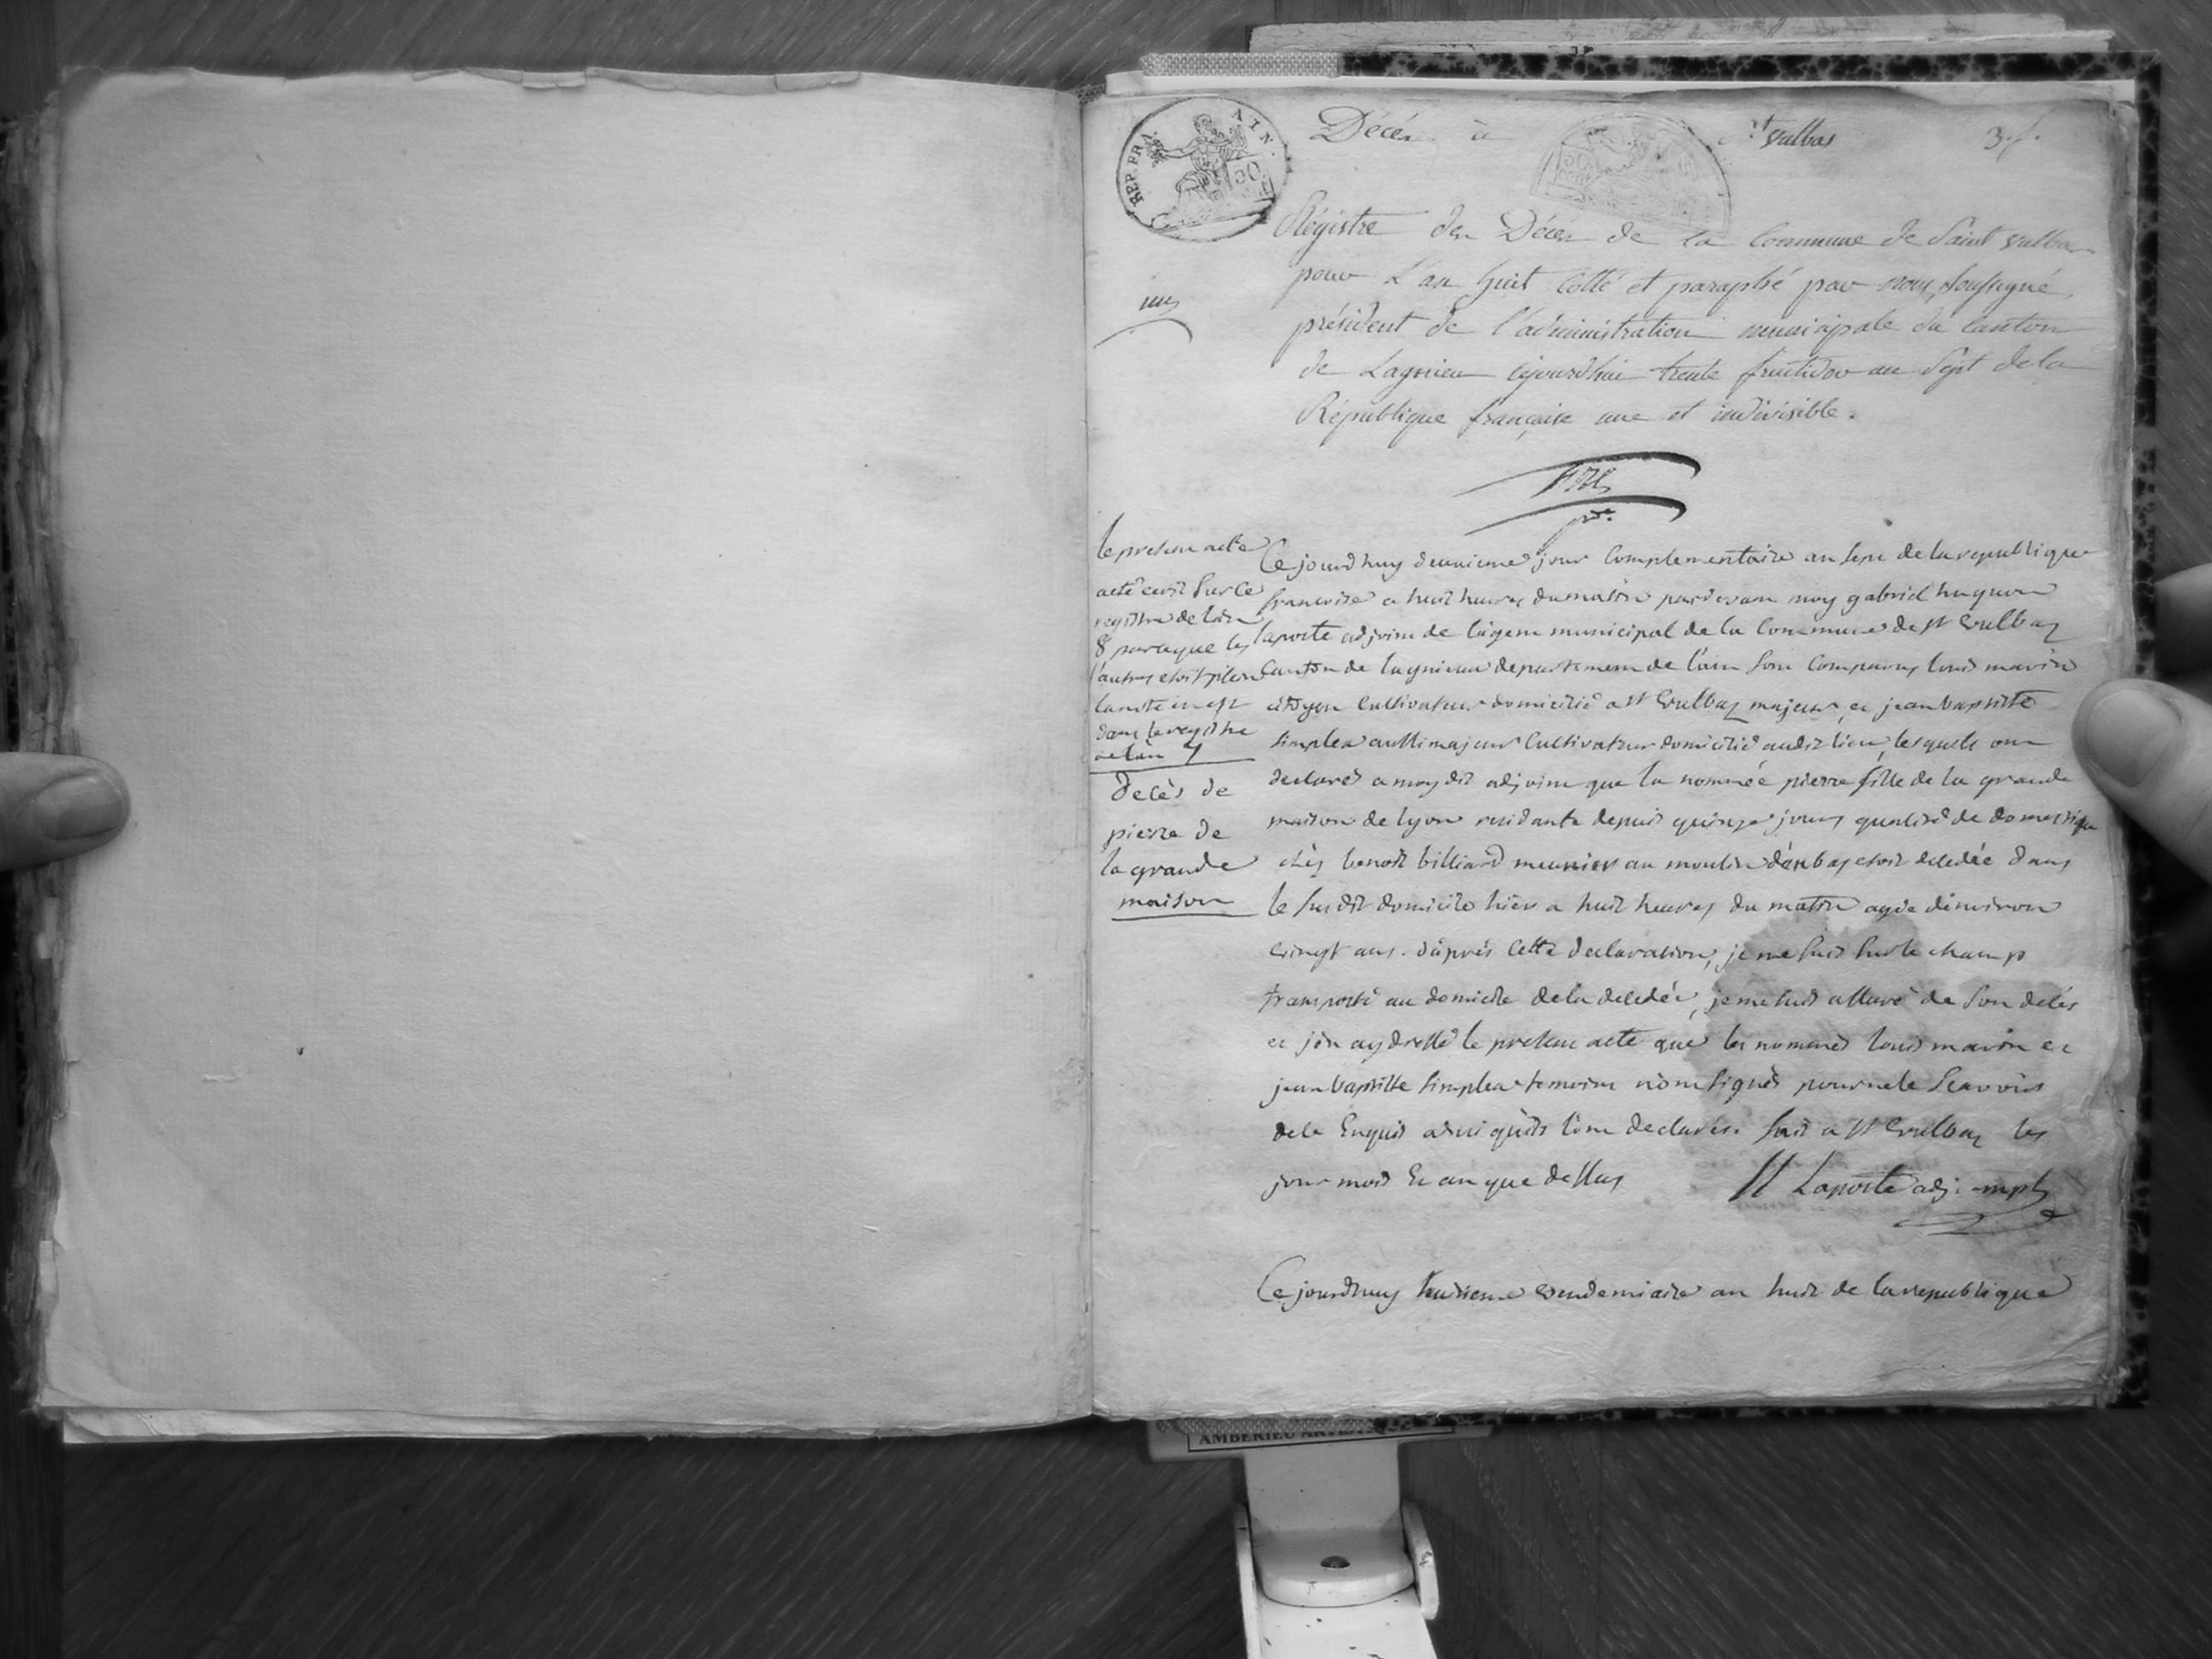 REP. FRA. AIN.
Décès à St Vulbas 3. f.
Régistre des Décès de la Commune de Saint Vulbas
pour L'an huit Cotté et paraphé par nous, Soussigné,
président de l'administration municipale du Canton
de Lagnieu cejourd'hui trente fructidor an Sept de la
République française une et indivisible.
le presen acte
acté ecrit Sur Ce
registre de l'an
8 parceque les
autres etoit plein
la note en est
dans le registre
de l'an 7
Decès de
pierre de
la grande
maison
Ce jourd'huy deuxieme jour Complementaire an sept de la republique
francoise a huit heures du matin pardevant moy gabriel huguon
laporte adjoint de lágent municipal de la Commune de St Vulbaz
Canton de lagnieu departement de l'ain sont Comparus louis marin
citoyen Cultivateur domicilié a St Vulbaz majeur, et jean baptiste
simplex aussi majeur Cultivateur domicilié audit lieu, lesquels ont
declarés a moy dit adjoint que la nommée pierre fille de la grande
maison de lyon residante depuis quinze jours qualité de domestique
chès benoit billiard meunier au moulin d'en bas etoit decedée dans
le susdit domicile hier a huit heures du matin agée d'environ
vingt ans. d'après Cette declaration, je me suis sur le champ
transporté au domicile de la decedée, je me suis assuré de son decés
et j'en ay dressé le present acte que les nommés louis marin et
jean baptiste simplex temoins n'ont signés pour ne le scavoir
de ce Enquis ainsi qu'ils l'ont declarés. fait a St Vulbaz les
jour mois Et an que dessus
H Laporte adj. mpl
Ce jourd'huy huitieme vendemiaire an huit de la republique
AMBERIEU ARTISTIQUE